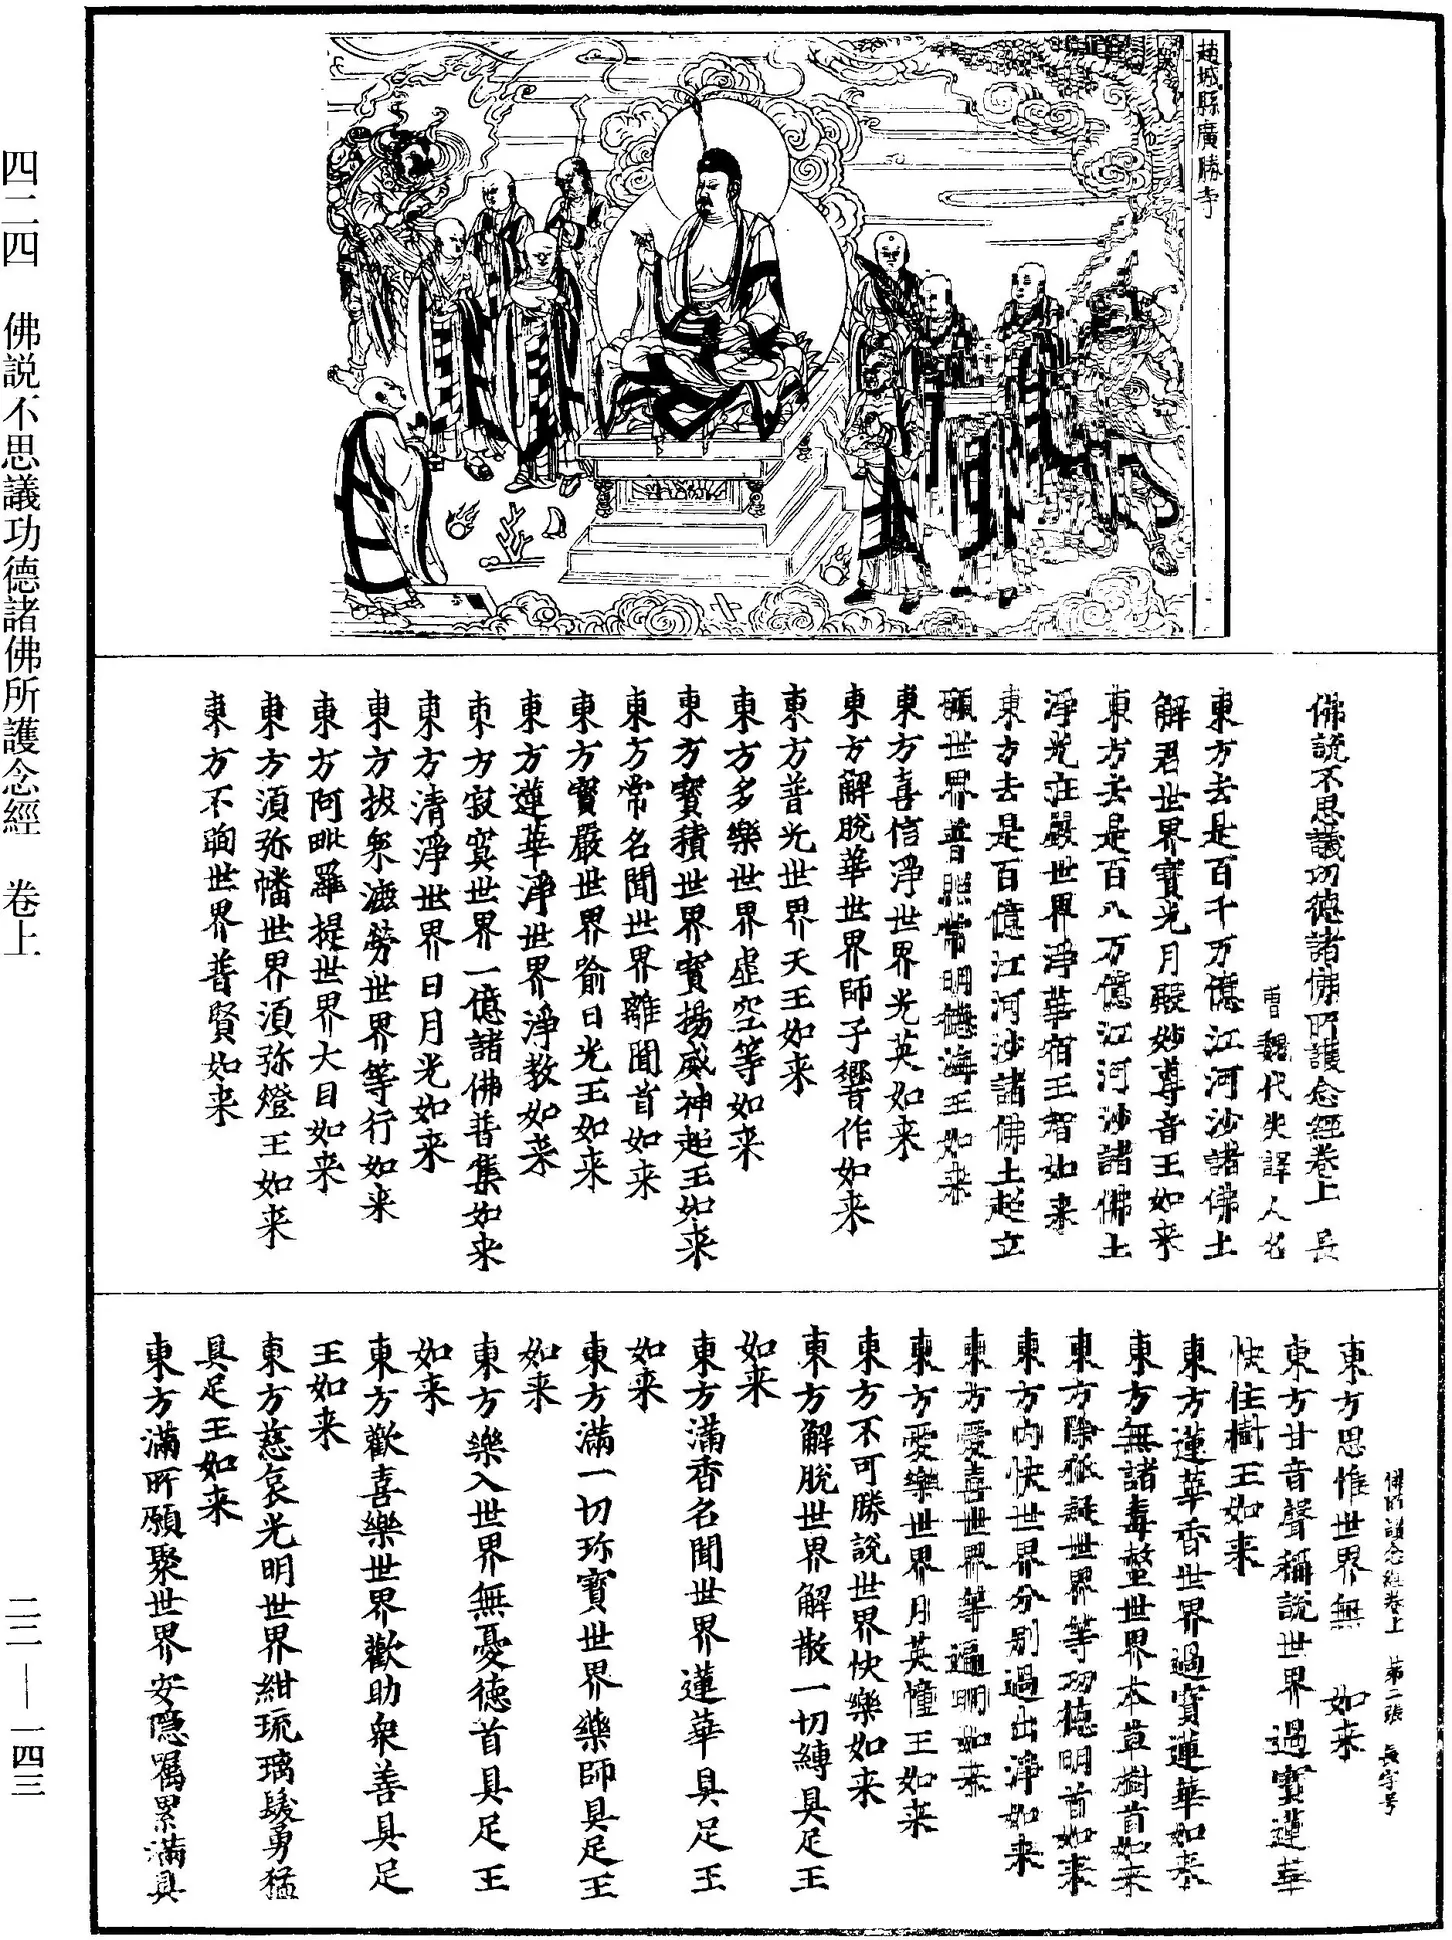 趙城縣廣勝寺
佛說不思議功德諸佛所護念經卷上　長
曹魏代失譯人名
東方去是百千万億江河沙諸佛土
解君世界寶光月殿妙尊音王如来
東方去是百八万億江河沙諸佛土
淨光莊嚴世界淨華宿王智如来
東方去是百億江河沙諸佛土超立
願世界普照常明德海王如来
東方喜信淨世界光英如来
東方解脫華世界師子響作如来
東方普光世界天王如来
東方多樂世界虛空等如来
東方寶積世界寶揚威神超王如来
東方常名聞世界離聞首如来
東方寶嚴世界踰日光王如来
東方蓮華淨世界淨教如来
東方寂寞世界一億諸佛普集如来
東方清淨世界日月光如来
東方拔眾塵勞世界等行如来
東方阿毗羅提世界大目如来
東方須弥幡世界須弥燈王如来
東方不眴世界普賢如来
佛所護念經卷上　第二張　長字号
東方思惟世界無　如来
東方甘音聲稱說世界過寶蓮華
快住樹王如来
東方蓮華香世界過寶蓮華如来
東方無諸毒螫世界本草樹首如来
東方除狐疑世界等功德明首如来
東方內快世界分別過出淨如来
東方愛喜世界等遍明如来
東方愛樂世界月英幢王如来
東方不可勝說世界快樂如来
東方解脫世界解散一切縛具足王
如来
東方滿香名聞世界蓮華具足王
如来
東方滿一切珎寶世界藥師具足王
如来
東方樂入世界無憂德首具足王
如来
東方歡喜樂世界歡助衆善具足
王如来
東方慈哀光明世界紺琉璃髮勇猛
具足王如来
東方滿所願聚世界安隱囑累滿具
四二四　佛説不思議功德諸佛所護念經　卷上
二二—一四三